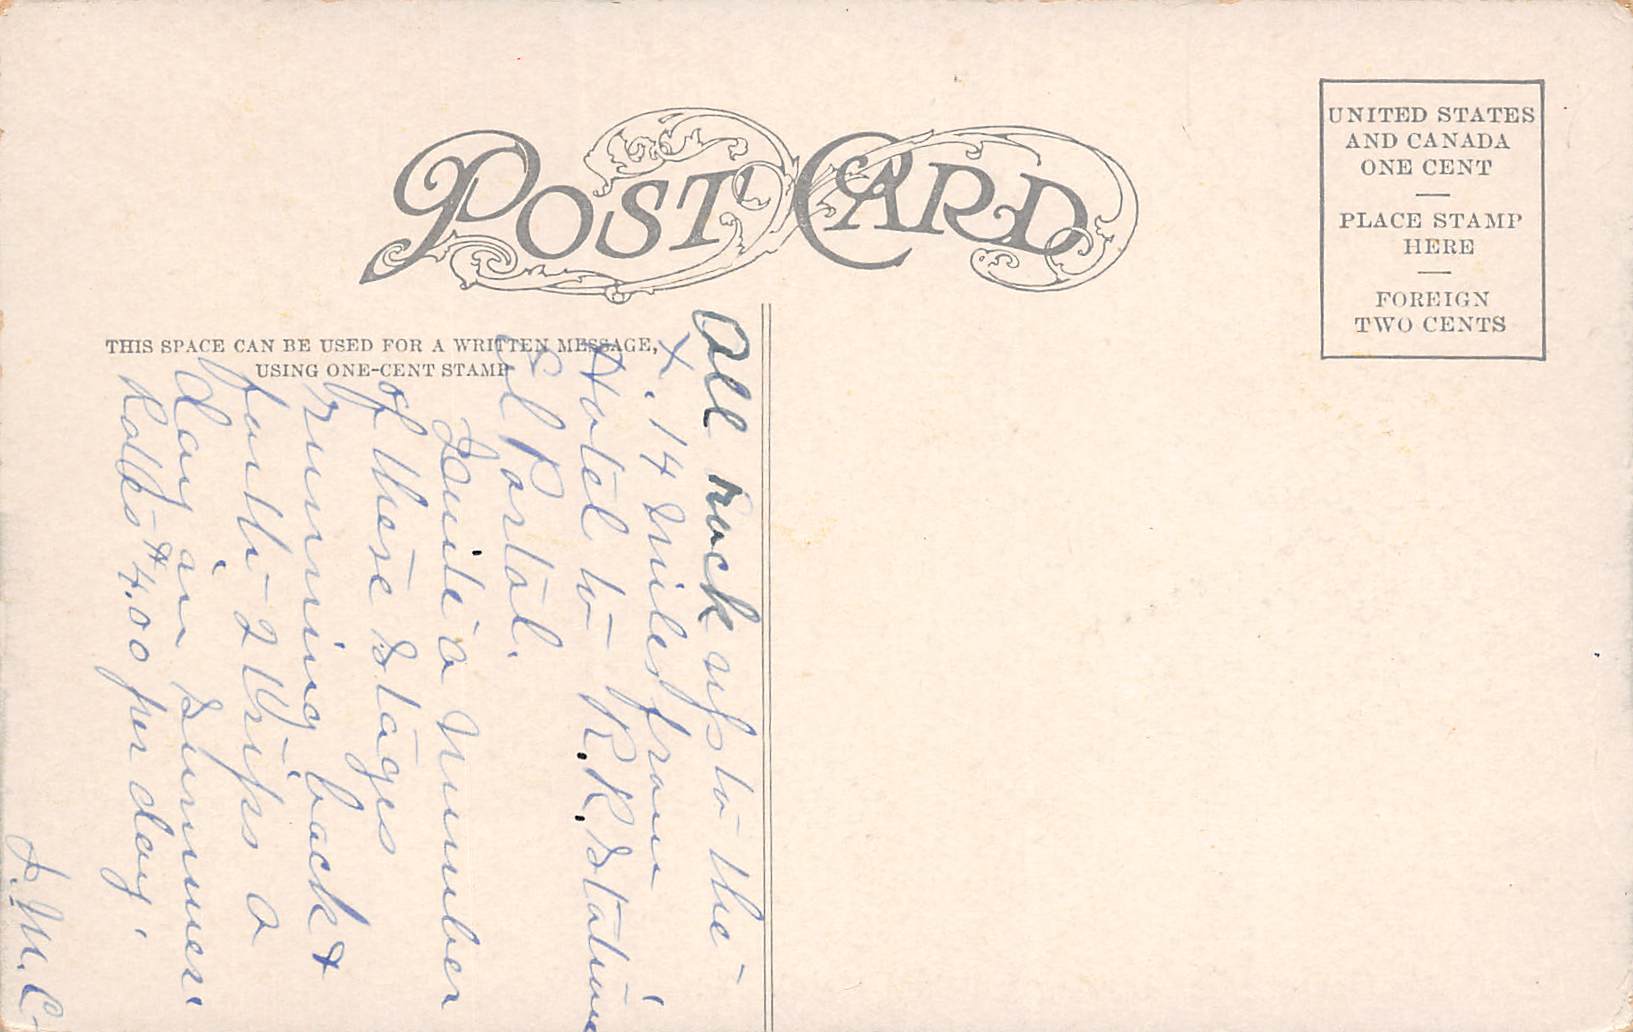 POST CARD
UNITED STATES
AND CANADA
ONE CENT
PLACE STAMP
HERE
FOREIGN
TWO CENTS
THIS SPACE CAN BE USED FOR A WRITTEN MESSAGE,
USING ONE-CENT STAMP
All rock up to the
X. 14 miles from
Hotel to R.R. Station
El Portal.
Quite a number
of these Stages
running back &
forth - 2 trips a
day in Summer.
Rates $4.00 per day.
J. M. C